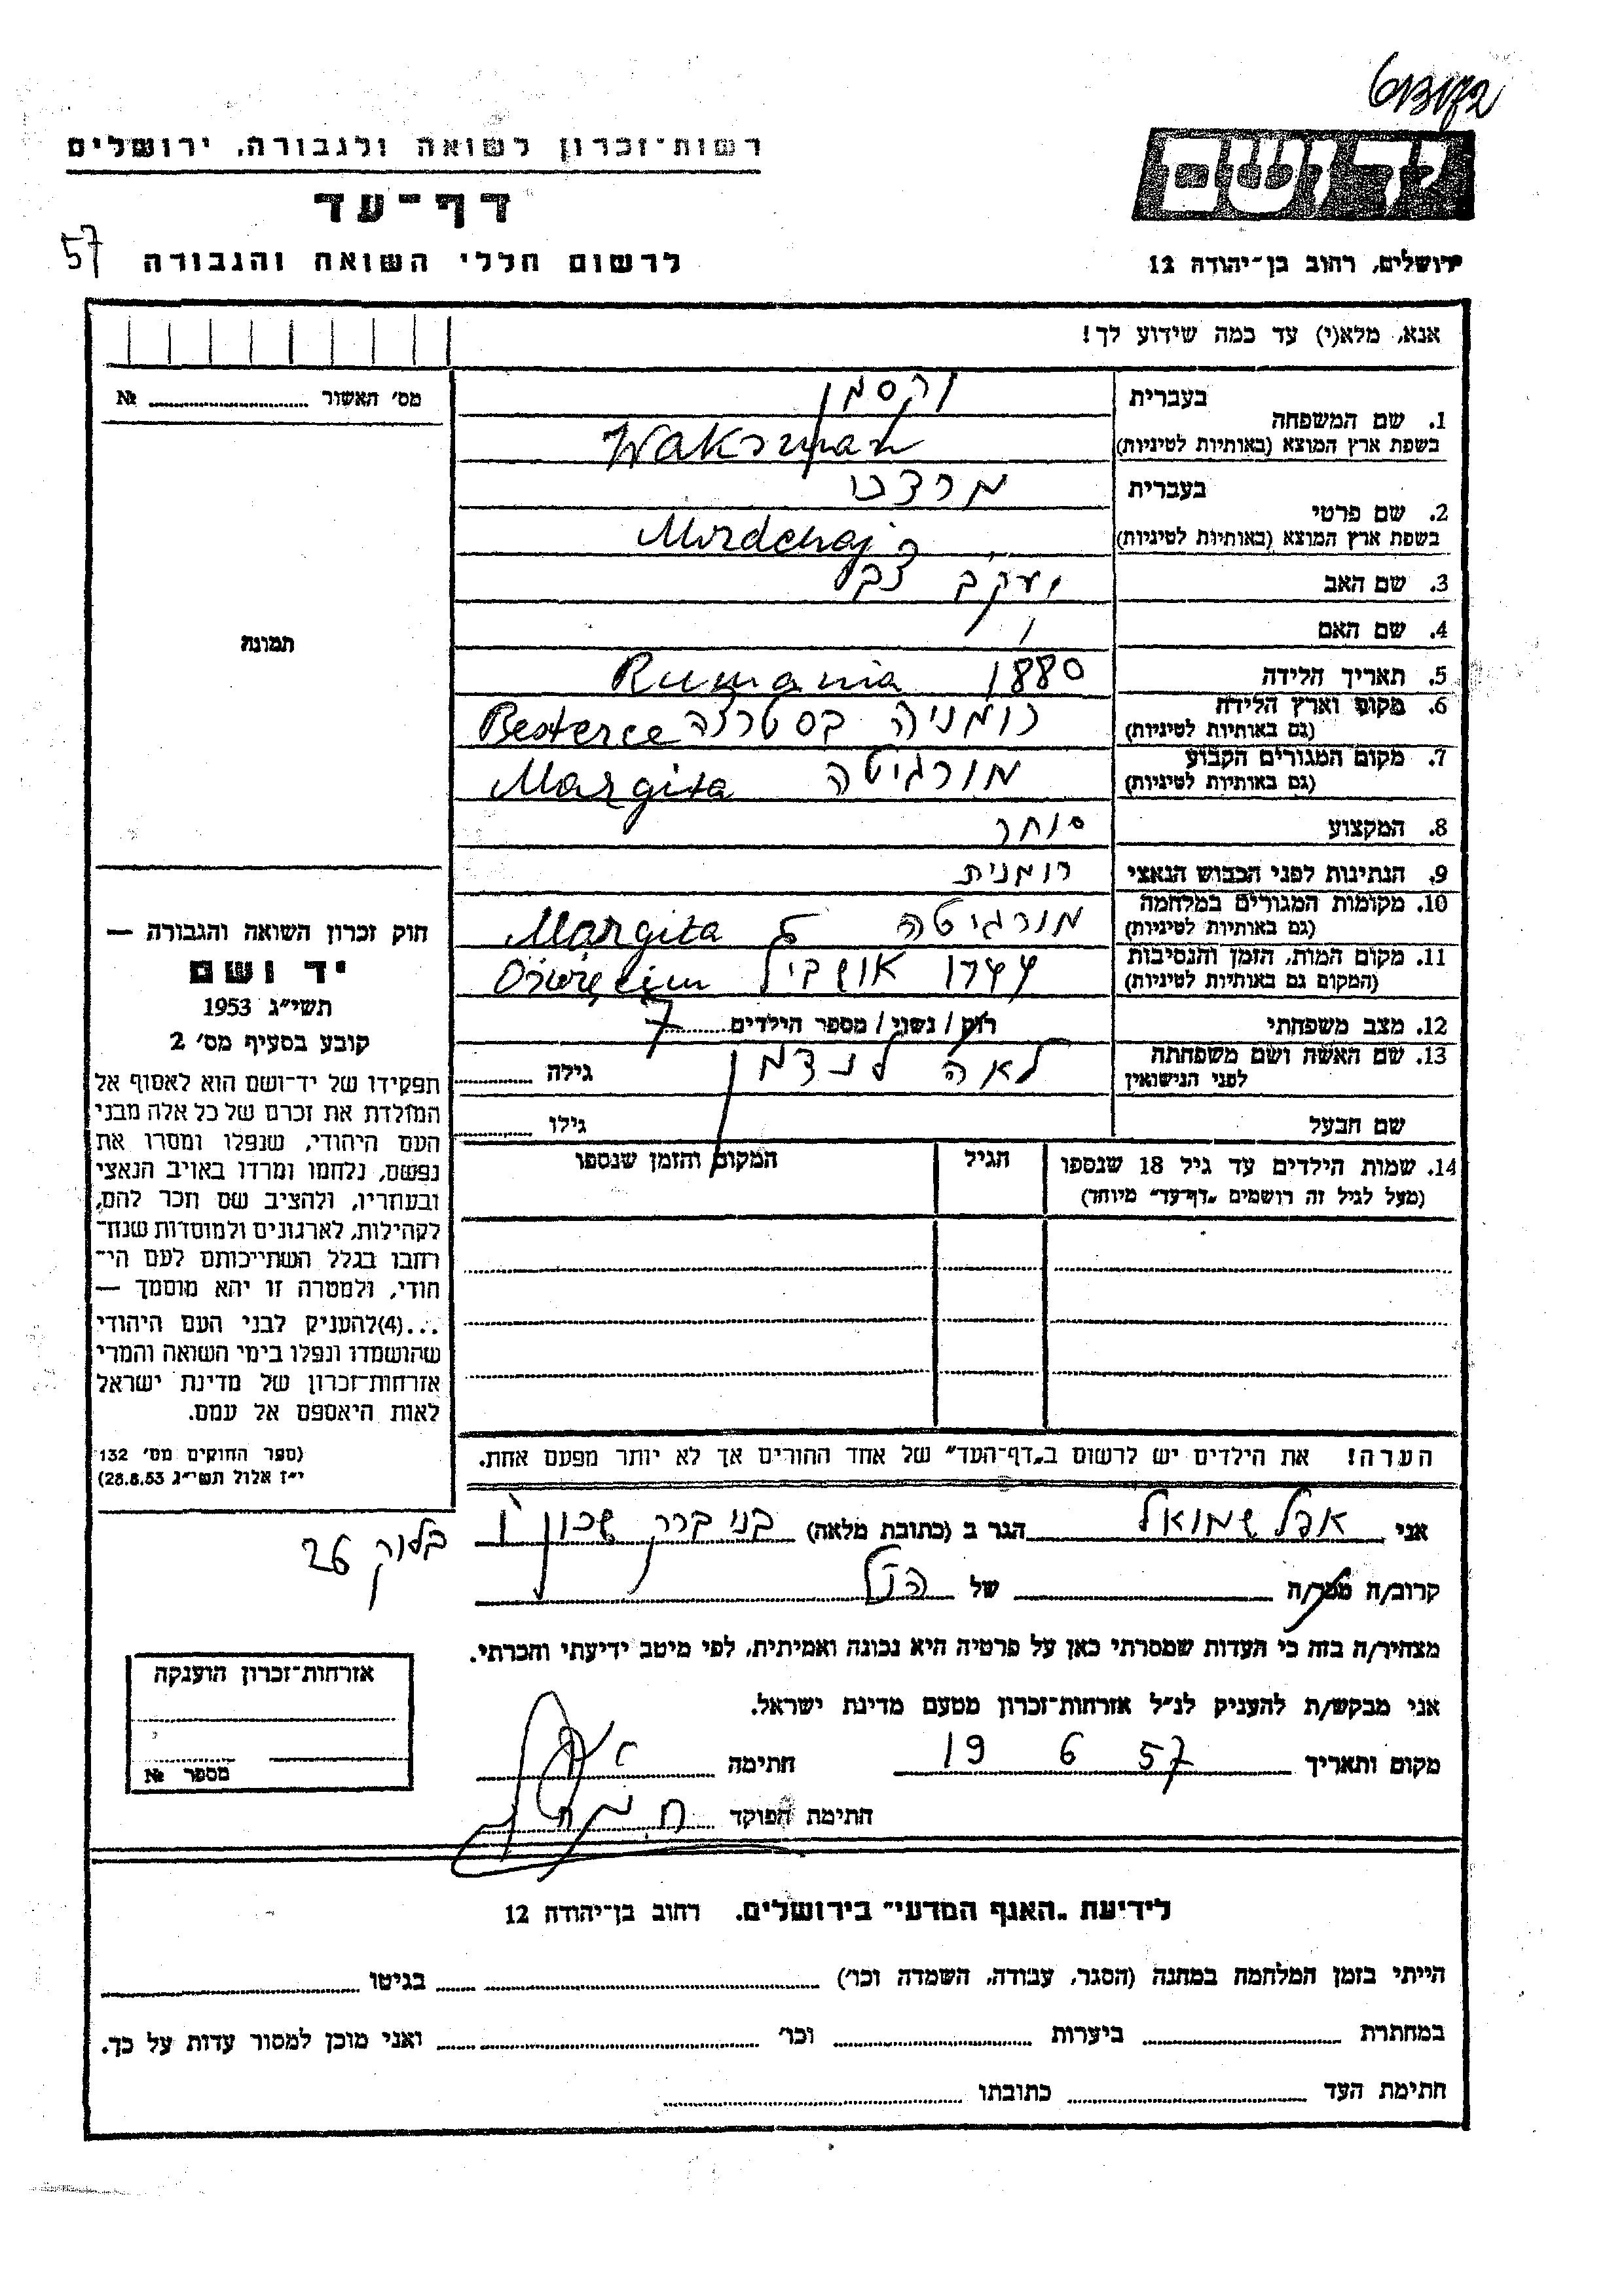 רשות־זכרון לשואה ולגבורה, ירושלים
דף־עד
לרשום חללי השואה והגבורה
57
יד ושם
ירושלים, רחוב בן־יהודה 12
אנא, מלא(י) עד כמה שידוע לך!
מס׳ האשור ........ №
תמונה
בעברית וקסמן
1. שם המשפחה
בשפת ארץ המוצא (באותיות לטיניות) Waksman
בעברית מרדכי
2. שם פרטי
בשפת ארץ המוצא (באותיות לטיניות) Mordchaj
3. שם האב יעקב צבי
4. שם האם
5. תאריך הלידה 1880 Rumania
6. מקום וארץ הלידה רומניה בסטרצה Besterce
(גם באותיות לטיניות)
7. מקום המגורים הקבוע מורגיטה Margita
(גם באותיות לטיניות)
8. המקצוע סוחר
9. הנתינות לפני הכבוש הנאצי רומנית
10. מקומות המגורים במלחמה מורגיטה Margita
(גם באותיות לטיניות)
11. מקום המות, הזמן והנסיבות Oświęcim
(המקום גם באותיות לטיניות)
12. מצב משפחתי רווק / נשוי / מספר הילדים 7
13. שם האשה ושם משפחתה לאה לנדמן גילה
לפני הנישואין
שם הבעל גילו
14. שמות הילדים עד גיל 18 שנספו הגיל המקום והזמן שנספו
(מעל לגיל זה רושמים „דף־עד״ מיוחד)
הערה! את הילדים יש לרשום ב„דף־העד״ של אחד ההורים אך לא יותר מפעם אחת.
חוק זכרון השואה והגבורה —
יד ושם
תשי״ג 1953
קובע בסעיף מס׳ 2
תפקידו של יד־ושם הוא לאסוף אל
המולדת את זכרם של כל אלה מבני
העם היהודי, שנפלו ומסרו את
נפשם, נלחמו ומרדו באויב הנאצי
ובעוזריו, ולהציב שם וזכר להם,
לקהילות, לארגונים ולמוסדות שנח־
רחבו בגלל השתייכותם לעם הי־
הודי, ולמטרה זו יהא מוסמך —
...(4)להעניק לבני העם היהודי
שהושמדו ונפלו בימי השואה והמרי
אזרחות־זכרון של מדינת ישראל
לאות היאספם אל עמם.
(ספר החוקים מס׳ 132
י״ז אלול תשי״ג 28.8.53)
אני אפל שמואל הגר ב (כתובת מלאה) בני ברק שכון ו
בלוק 26
קרוב/ה מכר/ה של הנ״ל
מצהיר/ה בזה כי העדות שמסרתי כאן על פרטיה היא נכונה ואמיתית, לפי מיטב ידיעתי והכרתי.
אני מבקש/ת להעניק לנ״ל אזרחות־זכרון מטעם מדינת ישראל.
מקום ותאריך 19 6 57 חתימה
חתימת הפוקד
אזרחות־זכרון הוענקה
מספר №
לידיעת „האגף המדעי״ בירושלים, רחוב בן־יהודה 12
הייתי בזמן המלחמה במחנה (הסגר, עבודה, השמדה וכו׳) בגיטו
במחתרת ביערות וכו׳ ואני מוכן למסור עדות על כך.
חתימת העד כתובתו